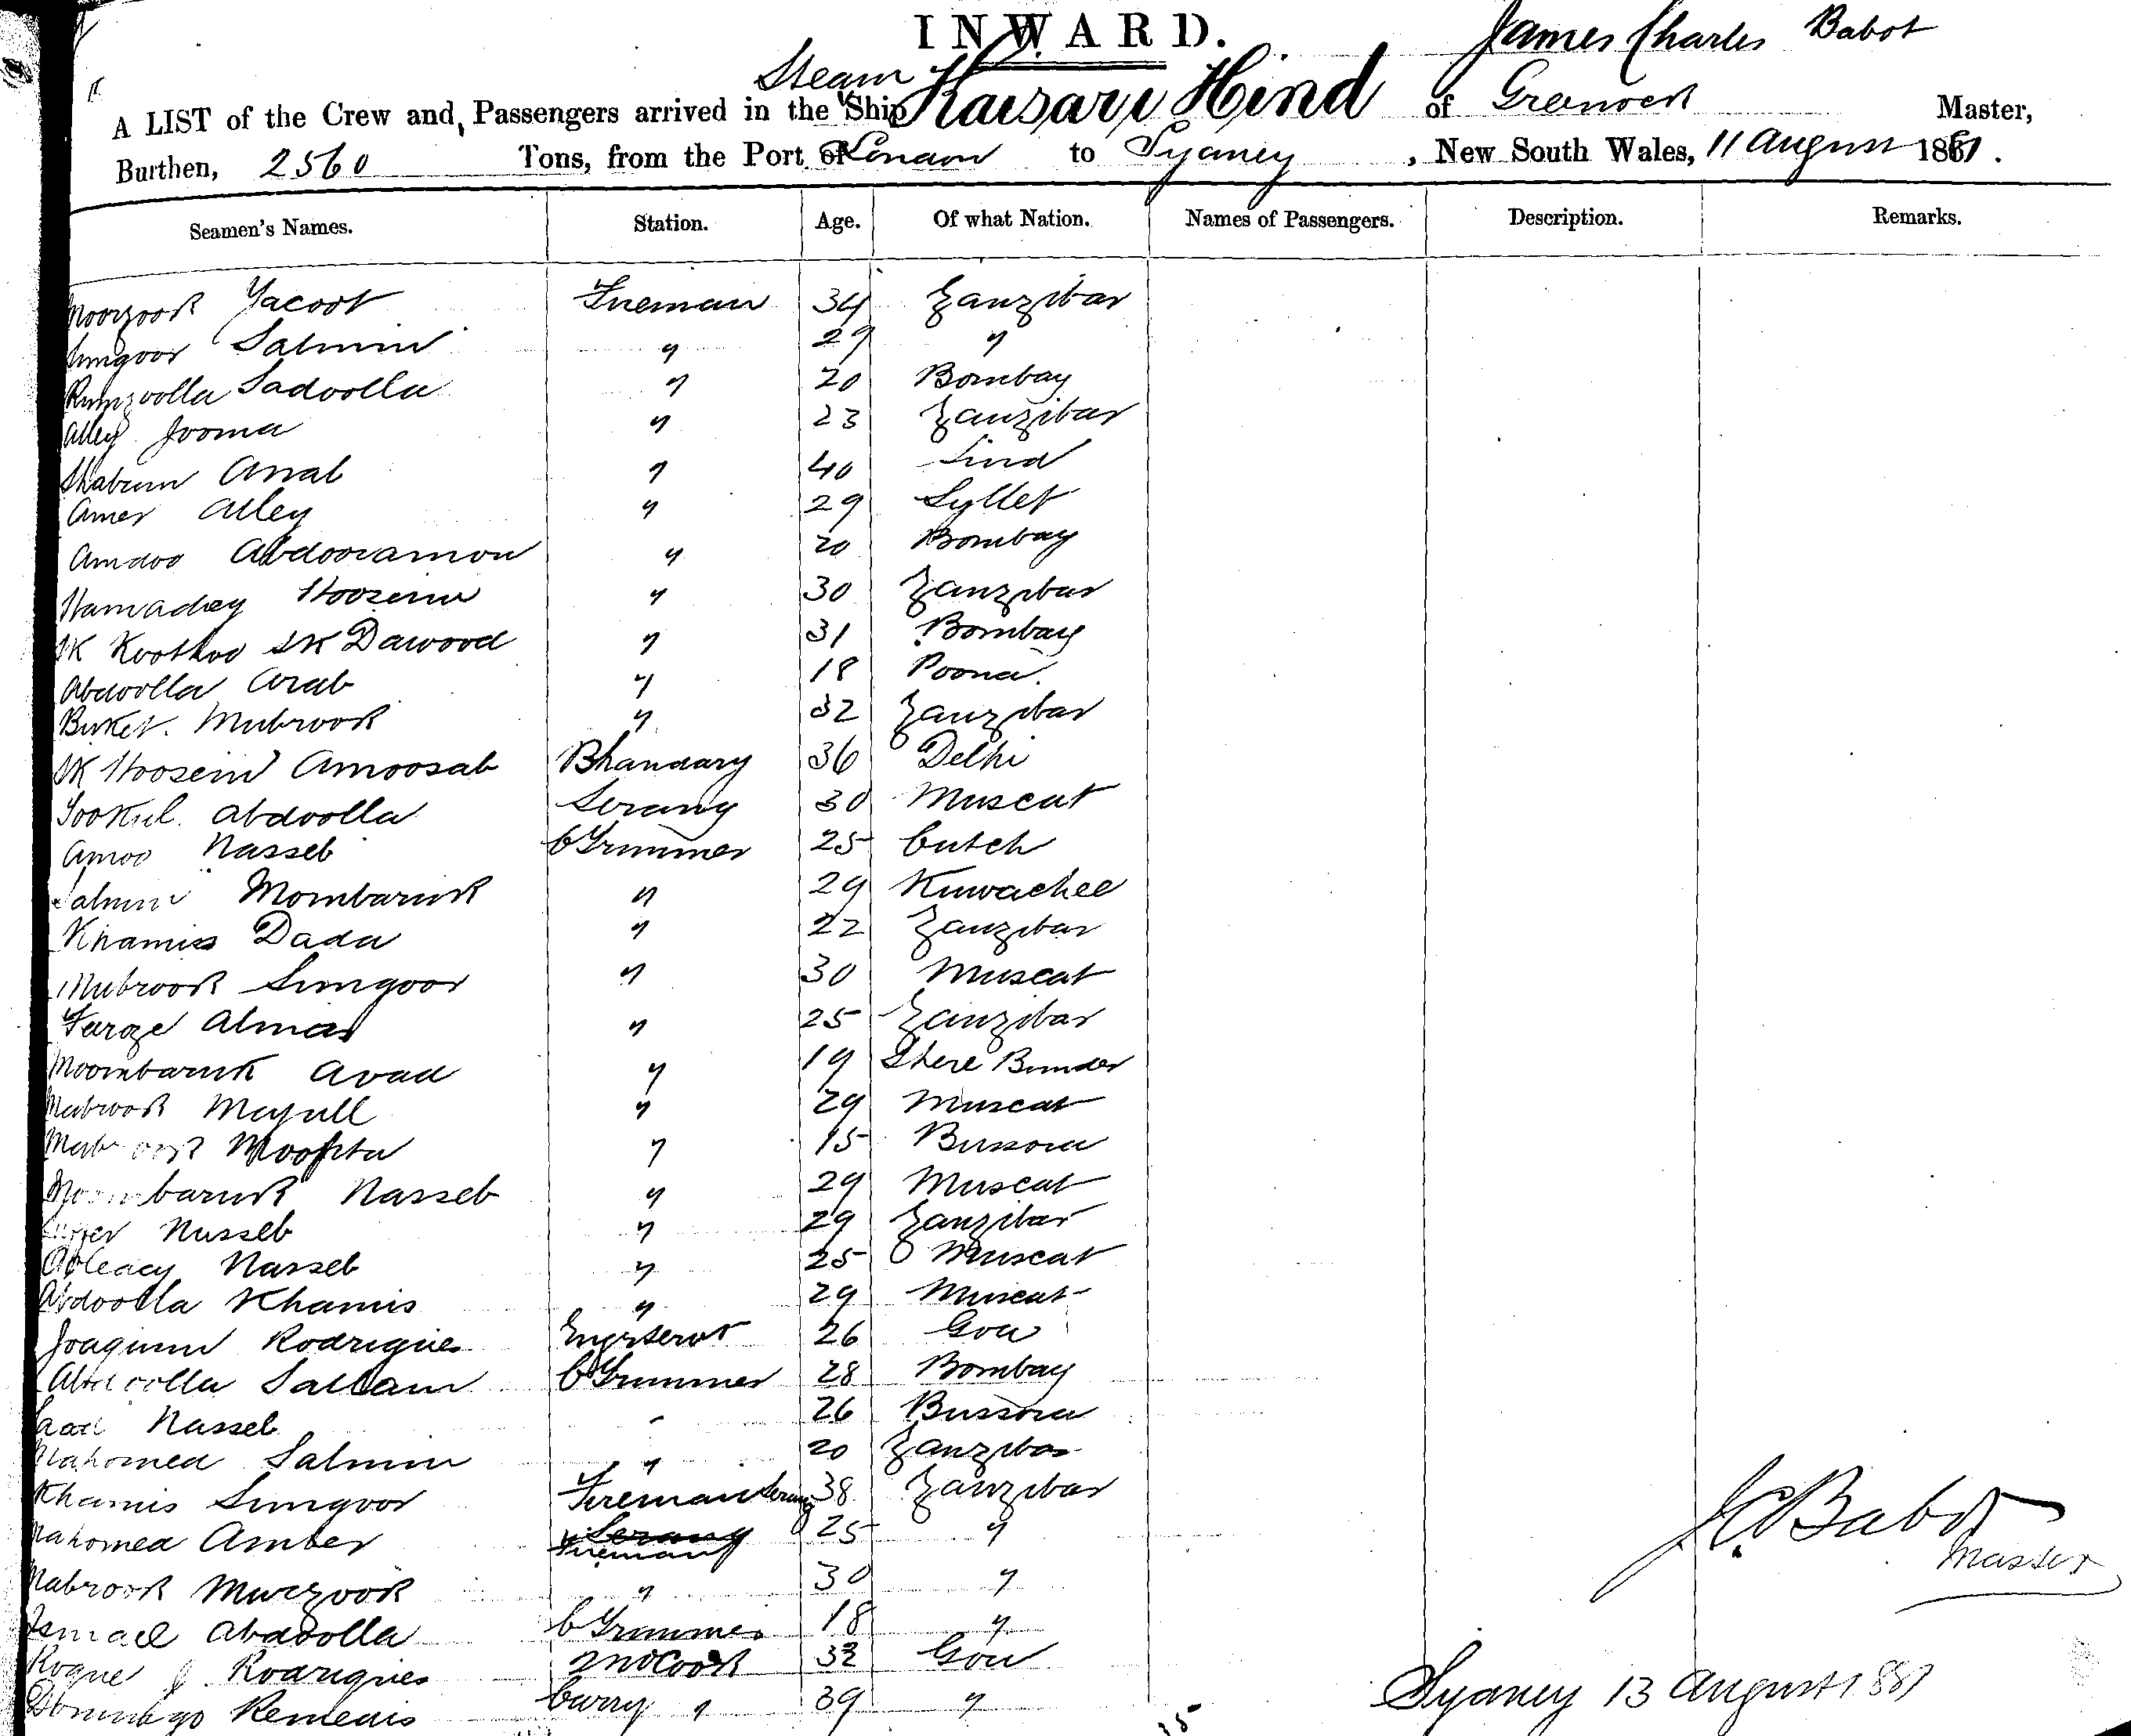 INWARD.
James Charles Babot
Steam
A LIST of the Crew and Passengers arrived in the Ship Kaisar i Hind of Greenock Master,
Burthen, 2560 Tons, from the Port of London to Sydney, New South Wales, 11 August 1881.
Seamen's Names. Station. Age. Of what Nation. Names of Passengers. Description. Remarks.
Moorzook Yacoot Fireman 34 Zanzibar
Sungoor Salmin " 29 "
Rumzoolla Sadoolla " 20 Bombay
Alley Jooma " 23 Zanzibar
Shabun Arrab " 40 Sind
Amer Alley " 29 Syllet
Amdoo Abdooramon " 20 Bombay
Hamadey Hoosein " 30 Zanzibar
SK Koothoo SK Dawood " 31 Bombay
Abdoolla Arab " 18 Poona.
Burket. Mubrook " 32 Zanzibar
SK Hoosein Amoosab Bhandary 36 Delhi
Sookul. Abdoolla Serang 30 Muscat
Amoo Nasseb C Trimmer 25 Cutch
Salmin Mombaruk " 29 Kurrachee
Khamiss Dada " 22 Zanzibar
Mubrook Sungoor " 30 Muscat
Faroze Almas " 25 Zanzibar
Moombaruk Avad " 19 Shere Bunder
Mubrook Mayull " 29 Muscat
Mubrook Moofta " 15 Bussora
Moombaruk Nasseb " 29 Muscat
Nusseb " 29 Zanzibar
Nasseb " 25 Muscat
Abdoolla Khamis " 29 Muscat
Joaquim Rodrigues Engrs Servt 26 Goa
Abdoolla Sallam C Trimmer 28 Bombay
Saad Nasseb " 26 Bussora
Mahomed Salmin " 20 Zanzibar
Khamis Sungoor Fireman Serang 38 Zanzibar
Mahomed Amber Serang Fireman 25 "
Mabrook Murzook " 30 "
Ismael Abdoolla C Trimmer 18 "
Roque J. Rodrigues 2nd Cook 32 Goa
Domingo Remedis Curry " 39 "
J C Babot
Master
Sydney 13 August 1881
35